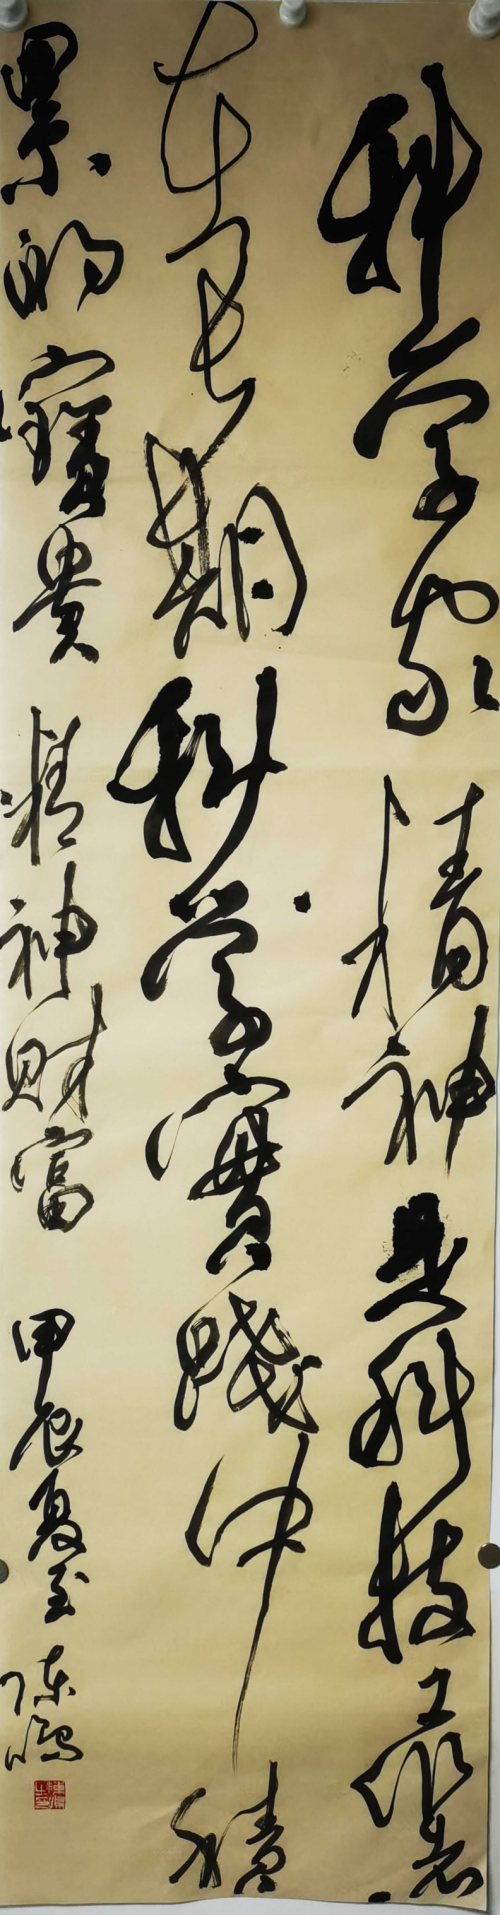 科学家精神是科技工作者
在长期科学實踐中積
累的寶貴精神财富
甲辰夏至 陈鸿